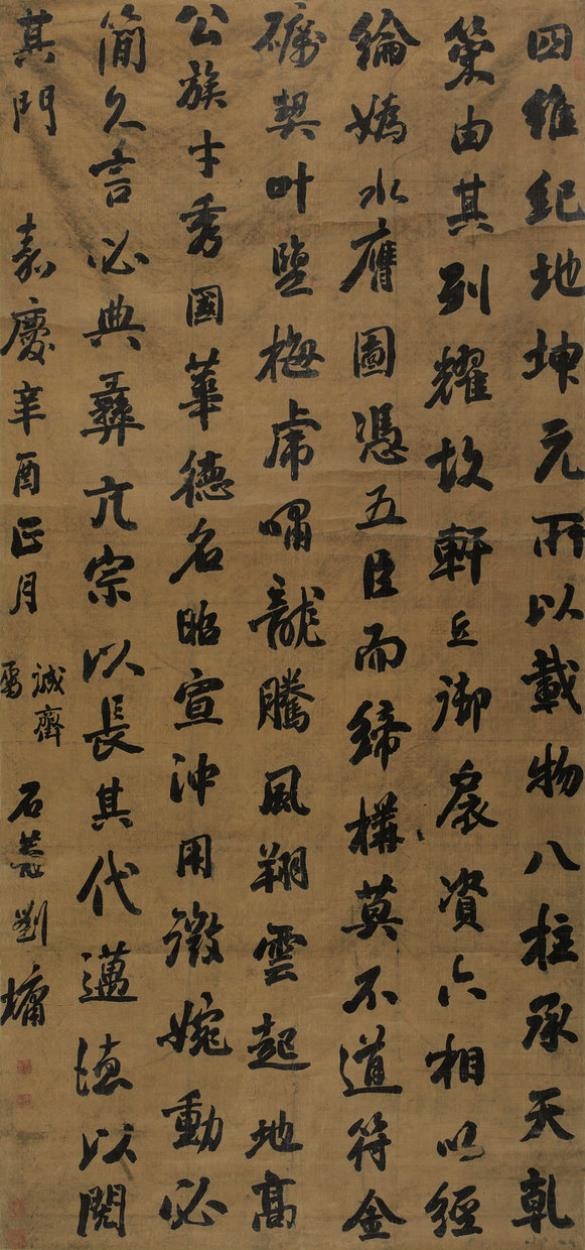 四維紀地坤元所以載物八柱承天乾
策由其列耀故軒丘御扆資六相以經
綸嬀水膺圖憑五臣而締構莫不道符金
礪契叶鹽梅虎嘯龍騰風翔雲起地高
公族才秀國華德名昭宣沖用徽婉動必
簡久言必典彝亢宗以長其代邁德以
其門 嘉慶辛酉正月 誠齋屬 石菴劉墉